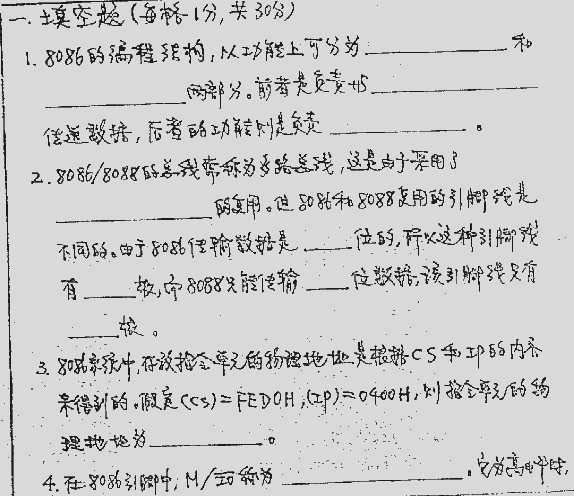 一、填空题(每格1分,共30分)
1. 8086的编程结构,从功能上可分为__________和
__________两部分。前者是负责与__________
传送数据,后者的功能则是负责__________。
2. 8086/8088的总线常称为多路总线,这是由于采用了
__________的复用。但8086和8088复用的引脚线是
不同的。由于8086传输数据是____位的,所以这种引脚线
有____根,而8088只能传输____位数据,该引脚线只有
____根。
3. 8086系统中,存放指令单元的物理地址是根据CS和IP的内容
来得到的。假定(CS)=FED0H,(IP)=0400H,则指令单元的物
理地址为__________。
4. 在8086引脚中,M/IO称为__________。它为高电平时,